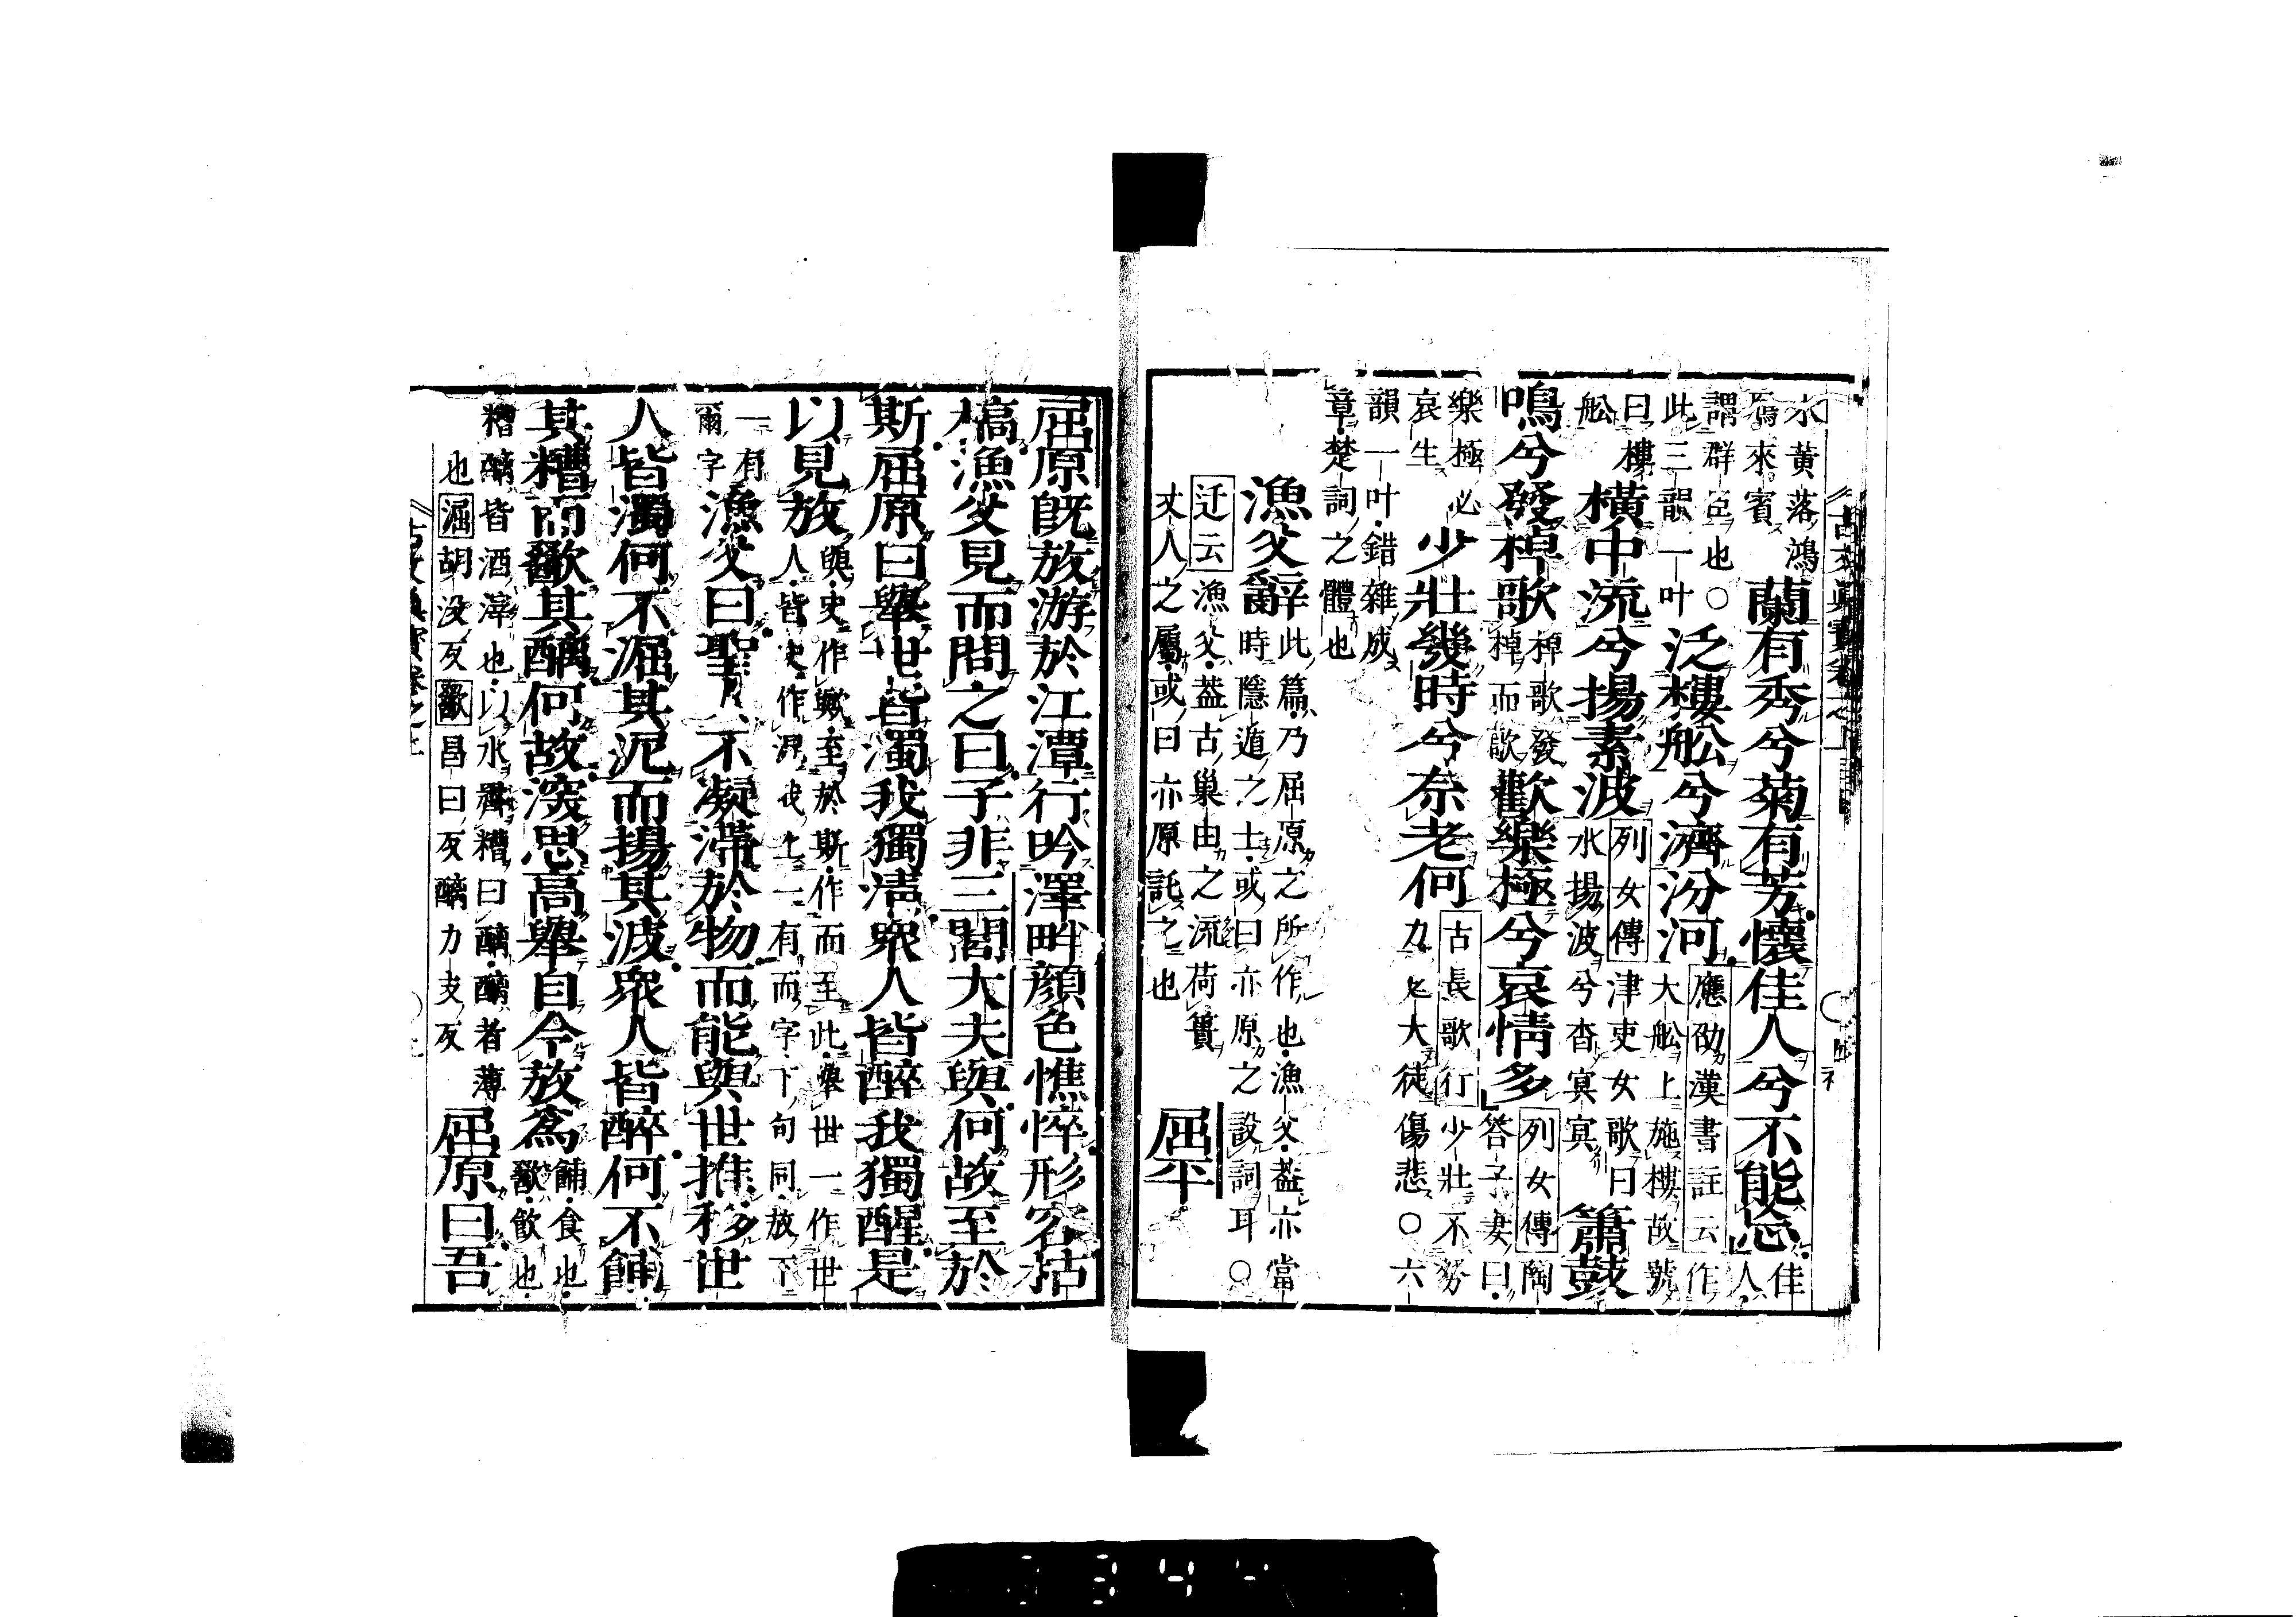 木黄落鴻
鴈來賓
蘭有秀兮菊有芳懷佳人兮不能忘
佳人
謂群臣也○
此三韻一叶
泛樓舩兮濟汾河
應劭漢書註云作
大舩上施樓故號
曰樓
舩
橫中流兮揚素波
列女傳津吏女歌曰
水揚波兮杳冥冥
簫鼓
鳴兮發棹歌
棹歌發
棹而歌
歡樂極兮哀情多
列女傳陶
答子妻曰
樂極必
哀生
少壯幾時兮奈老何
古長歌行少壯不努
力老大徒傷悲○六
韻一叶錯雜成
章楚詞之體也
漁父辭
此篇乃屈原之所作也漁父蓋亦當
時隱遁之士或曰亦原之設詞耳○
迂云漁父蓋古巢由之流荷蕢
丈人之屬或曰亦原託之也
屈平
屈原既放游於江潭行吟澤畔顏色憔悴形容枯
槁漁父見而問之曰子非三閭大夫與何故至於
斯屈原曰舉世皆濁我獨淸衆人皆醉我獨醒是
以見放
與史作歟至於斯作而至此舉世一作世
人皆史作混我上一有而字下句同放下
一有
爾字
漁父曰聖人不凝滯於物而能與世推移世
人皆濁何不淈其泥而揚其波衆人皆醉何不餔
其糟而歠其醨何故深思高舉自令放爲
餔食也
歠飲也
糟醨皆酒滓也以水䪥糟曰醨醨者薄
也淈胡没反歠昌曰反醨力支反
屈原曰吾